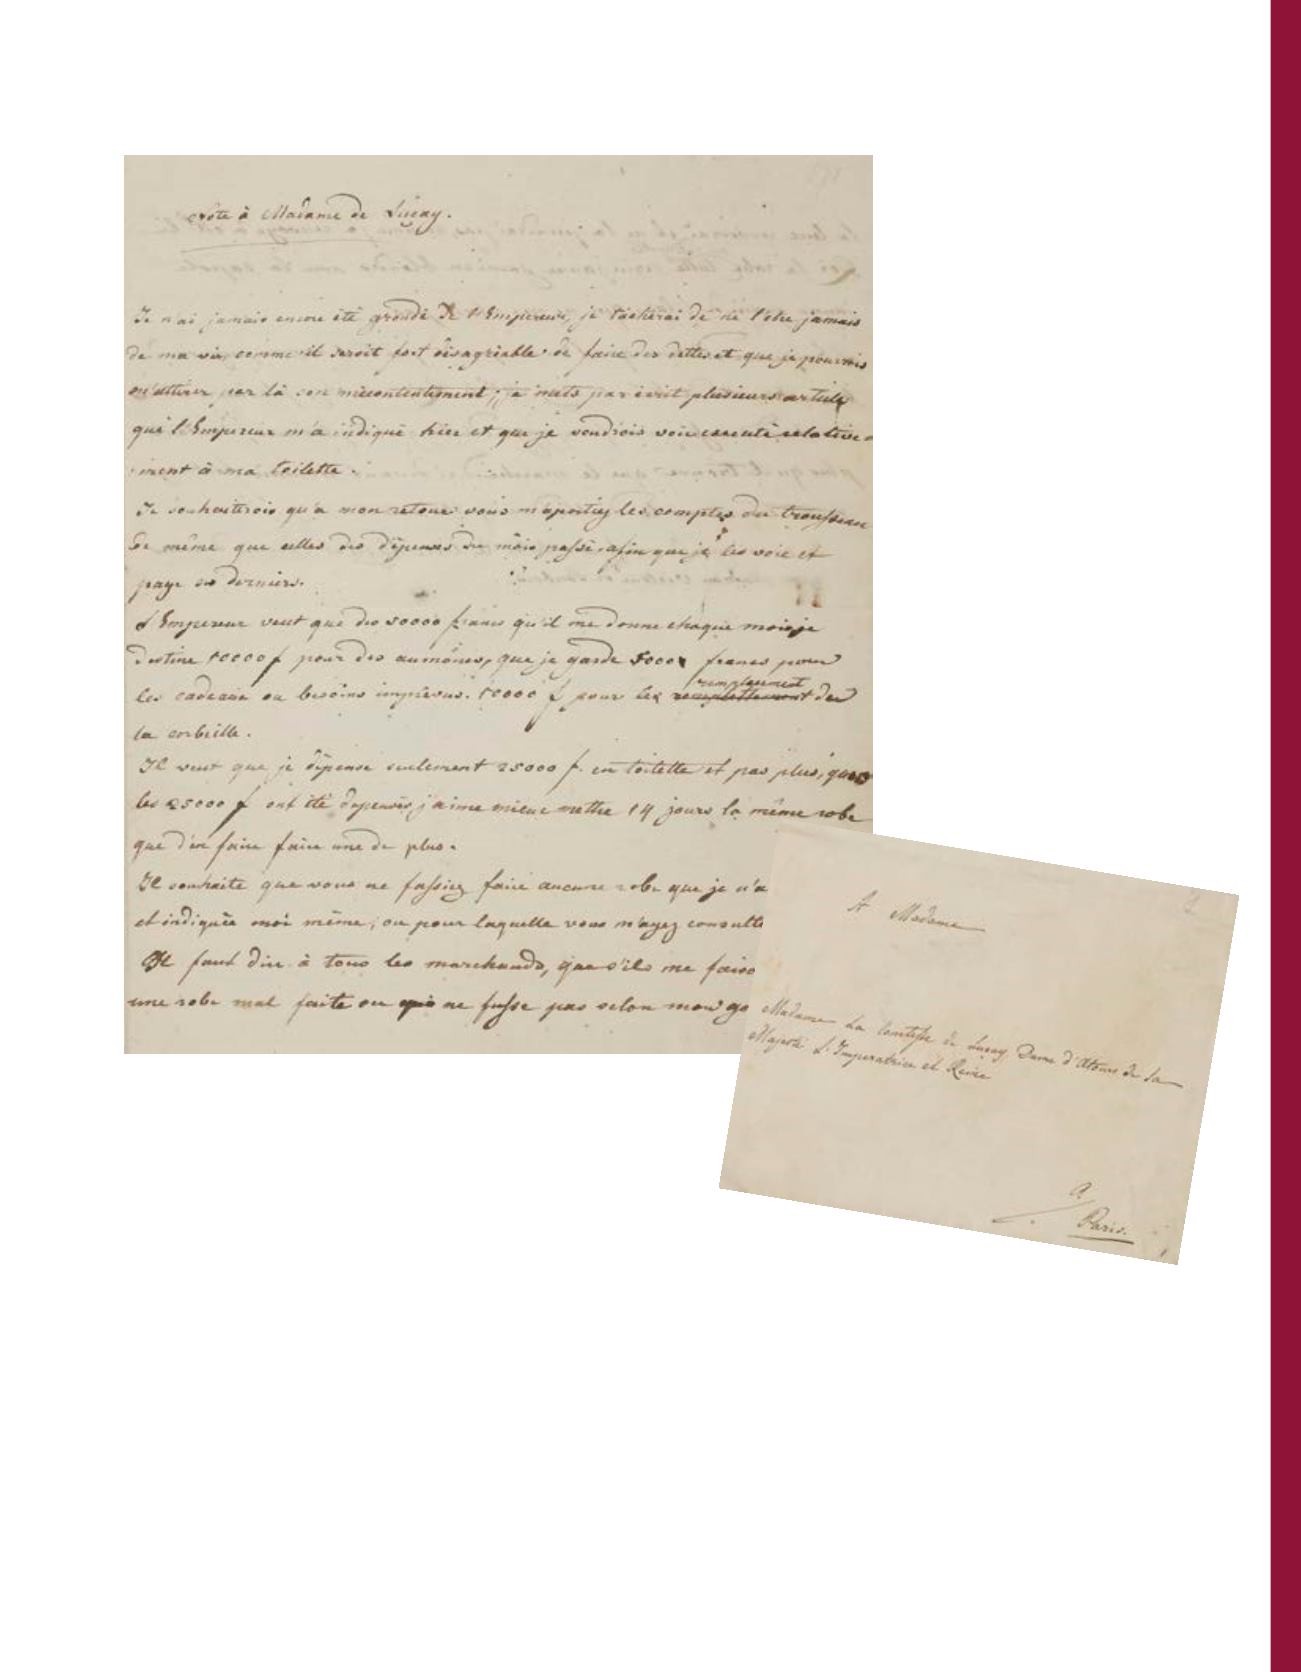 Note à Madame de Luçay.
Je n'ai jamais encore été grondé de l'Empereur, je tacherai de ne l'etre jamais
de ma vie, comme il seroit fort désagréable de faire des dettes et que je pourrois
m'attirer par là son mécontentement; je mets par écrit plusieurs article
que l'Empereur m'a indiqué hier et que je voudrois voir executé relative-
ment à ma toilette.
Je souhaiterois qu'a mon retour vous m'aportiez les comptes du trousseau
de même que celles des dépenses du mois passé, afin que je les voie et
paye ces derniers.
L'Empereur veut que des 50000 francs qu'il me donne chaque mois je
destine 10000 f pour des aumônes, que je garde 5000 francs pour
les cadeaux ou besoins imprévus. 10000 f pour les remplacement de
la corbeille.
Il veut que je dépense seulement 25000 f. en toilette et pas plus, quand
les 25000 f ont été dépensés, j'aime mieux mettre 14 jours la même robe
que d'en faire faire une de plus.
Il souhaite que vous ne fassiez faire aucune robe que je n'a
et indiquée moi même, ou pour laquelle vous m'ayez consulte
Il faut dire à tous les marchands, que s'ils me faiso
une robe mal faite ou qui ne fusse pas selon mon go
A Madame
Madame La Comtesse de Luçay Dame d'Atours de Sa
Majesté L'Imperatrice et Reine
a
Paris.